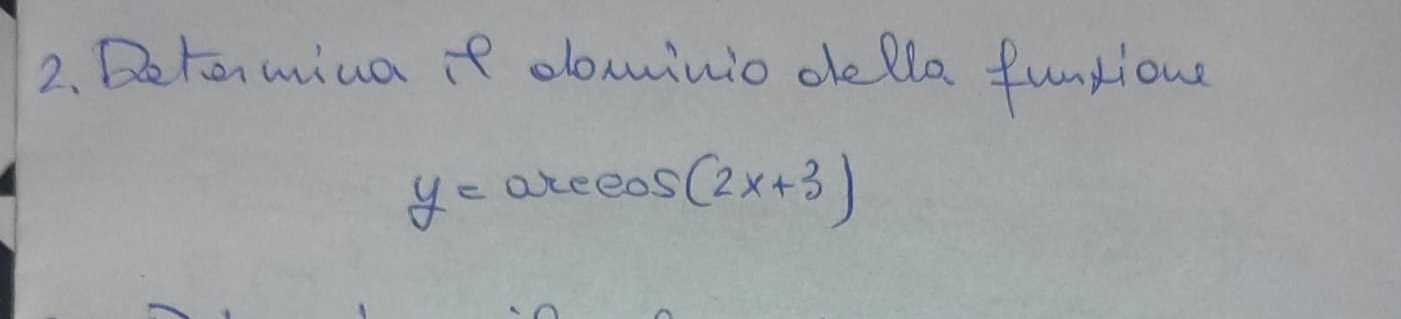 2. Determina il dominio della funzione
y = arccos(2x+3)